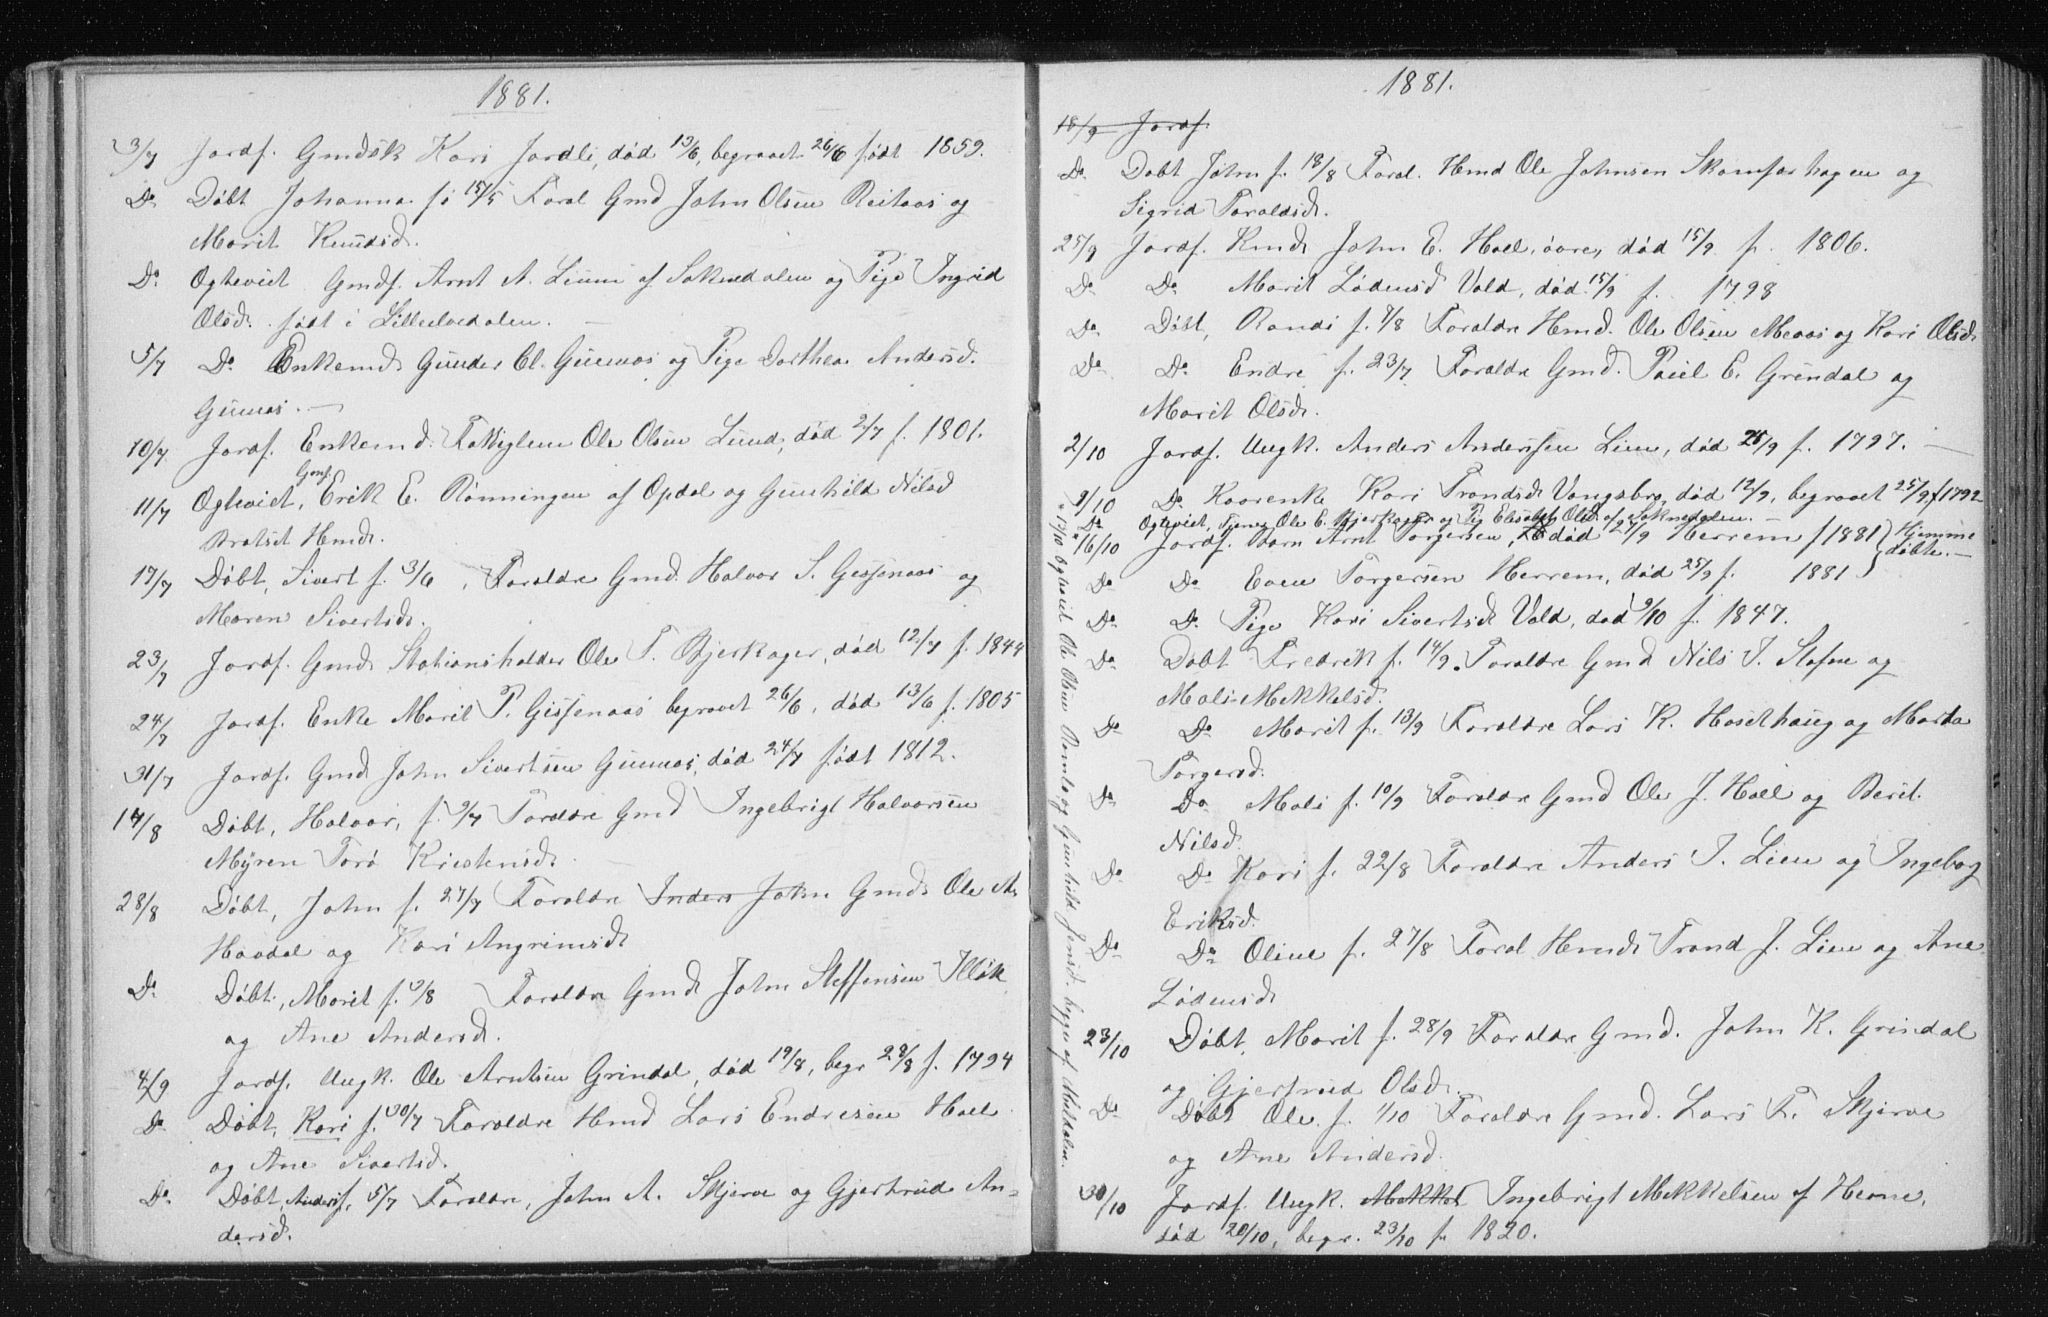 1881.
3/7 Jordf. Gmdsk Kari Jordli, død 13/6, begravet 26/6 født 1859.
Do Døbt Johanna fø 15/5 Foral Gmd John Olsen Reitaas og
Marit Knudsd.
Do Ogteviet Gmdf. Arnt A. Lium af Soknedalen og Pige Ingrid
Olsd. født i Lilleelvedalen. —
5/7 Do Enkemd Gunder Cl. Gunnes og Pige Dorthea Andersd.
Gunnes. —
10/7 Jordf. Enkemd. Fattiglem Ole Olsen Lund, død 2/7 f. 1801.
Gmf.
11/7 Ogteviet, Erik E. Rønningen af Opdal og Gunhild Nilsd
Bratset Hmd.
17/7 Døbt, Sivert f. 3/6, Foraldre Gmd. Halvor S. Gissenaas og
Maren Sivertsd.
23/7 Jordf. Gmd Stationsholder Ole T. Bjerkager, død 12/7 f. 1844
24/7 Jordf. Enke Marit P. Gissenaas begravet 26/6, død 13/6 f. 1805
31/7 Jordf. Gmd John Sivertsen Gunnes, død 24/7 født 1812.
14/8 Døbt, Halvor, f. 9/7 Foraldre Gmd Ingebrigt Halvorsen
Myren Torø Kristensd.
28/8 Døbt, John f. 27/7 Foraldre Anders John Gmd Ole A.
Havdal og Kari Angrimsd
Do Døbt, Marit f. 3/8 Foraldre Gmd John Steffensen Illøk
og Ane Andersd.
4/9 Jordf. Ungk. Ole Arntsen Grindal, død 19/8, begr 28/8 f. 1794
Do Døbt, Kari f. 30/7 Foraldre Hmd Lars Endresen Hoel
og Ane Sivertsd.
Do Døbt, Anders f. 5/7 Foraldre, John A. Skjerve og Gjertrud An=
dersd.
1881.
18/9 Jordf.
Do Døbt John f. 18/8 Foral. Hmd Ole Johnsen Skamferhagen og
Sigrid Faroldsd.
25/9 Jordf. Kmd John E. Hoel, øvre, død 15/9 f. 1806.
Do Do Marit Lødensd Vold, død 15/9 f. 1798
Do Døbt, Randi f. 7/8 Foraldre Hmd. Ole Olsen Meaas og Kari Olsd.
Do Do Endre f. 23/7 Foraldre Gmd. Poul E. Grindal og
Marit Olsd.
2/10 Jordf. Ungk. Anders Anderssen Lien, død 25/9 f. 1797. —
9/10 Do Kaarenke Kari Trondsd Vangsbro, død 12/9, begravet 25/9 f 1792
Do Ogteviet, Tjener Ole E. Bjerkager og Pig Elisabet Olsd. af Soknedalen. —
16/10 Jordf. Barn Arnt Torgersen, død 24/9 Herrem f 1881 } Hjemme
døbte. —
Do Do Even Torgersen Herrem, død 25/9 f. 1881
Do Do Pige Kari Sivertsd Vold, død 9/10 f. 1847.
Do Døbt Fredrik f. 14/9. Foraldre Gmd Nils J. Stafne og
Mali Mekkelsd.
Do Do Marit f. 13/9 Foraldre Lars K. Hosethaug og Marta
Torgersd.
Do Do Mali f. 10/9 Foraldre Gmd Ole J. Hoel og Berit
Nilsd.
Do Do Kari f. 22/8 Foraldre Anders J. Lien og Ingeborg
Eriksd.
Do Do Oline f. 27/8 Foral Hmd Trond J. Lien og Ane
Lødensd
23/10 Døbt, Marit f. 28/9 Foraldre Gmd. John K. Grindal
og Gjertrud Olsd.
Do Døbt Ole f. 1/10 Foraldre Gmd. Lars F. Skjerve
og Ane Andersd.
30/10 Jordf. Ungk. Mekkel Ingebrigt Mekkelsen af Hevne,
død 20/10, begr. 23/10 f. 1820.
* 19/10 Ogteviet Ole Olsen og Gunhild Jensd. begge af Meldalen.